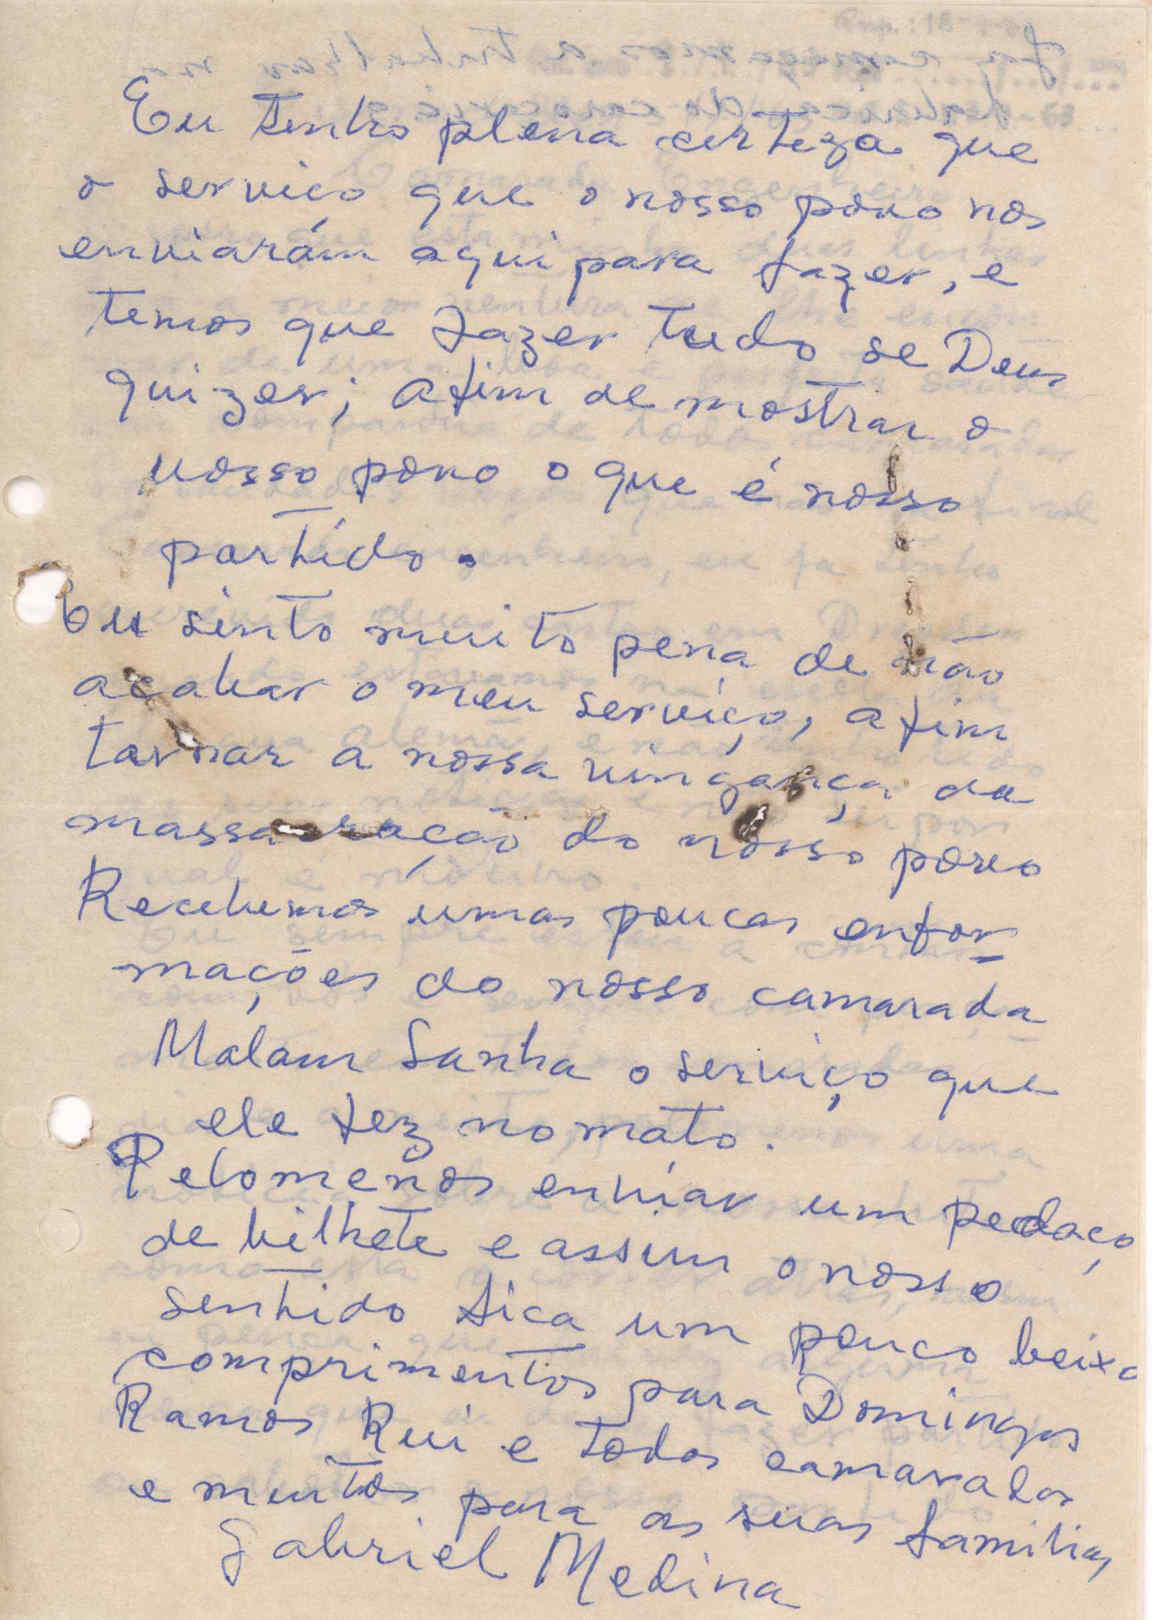 Eu tenho plena certeza que
o serviço que o nosso povo nos
enviarám aqui para fazer, e
temos que fazer tudo se Deus
quizer; afim de mostrar o
nosso povo o que é nosso
partído.
Eu sinto muito pena de não
acabar o meu serviço, afim
tornar a nossa vingança da
massacração do nosso povo
Recebemos umas poucas enfor-
mações do nosso camarada
Malam Sanha o serviço que
ele fez no mato.
Pelomenos enviar um pedaço
de bilhete e assim o nosso
sentido fica um pouco beixo
comprimentos para Domingos
Ramos Rui e todos camaradas
e muitos para as suas familias
Gabriel Medina